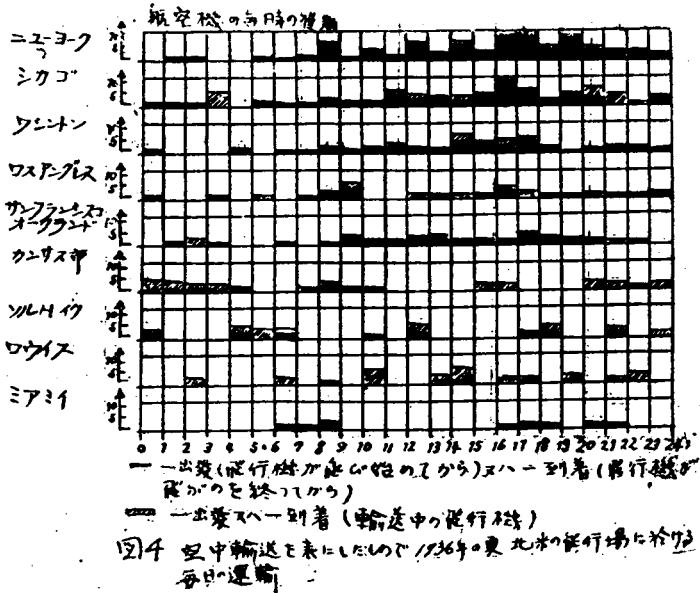 航空機の毎時の後期
ニューヨーク
シカゴ
ワシントン
ロスアングレス
サンフランシスコ
オークランド
カンサス都
ソルトレイク
ロウイス
ミアミイ
0 1 2 3 4 5 6 7 8 9 10 11 12 13 14 15 16 17 18 19 20 21 22 23 24時
一出発(飛行機が飛び始めてから)又ハ一到着(飛行機が
飛ぶのを終つてから)
一出発又ハ一到着(輸送中の飛行機)
図4 空中輸送を表にしたもので1936年の東北米の飛行場に於ける
毎日の運輸